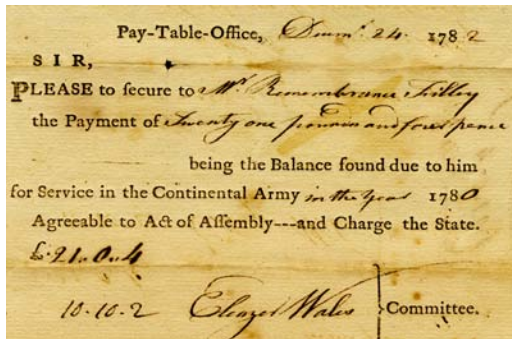 Pay-Table-Office, Decemr. 24. 1782
SIR,
PLEASE to secure to Mr. Remembrance Filley
the Payment of Twenty one pounds and four pence
being the Balance found due to him
for Service in the Continental Army in the Year 1780
Agreeable to Act of Aſſembly---and Charge the State.
£.21..0..4
10.10.2 Eleazer Wales } Committee.